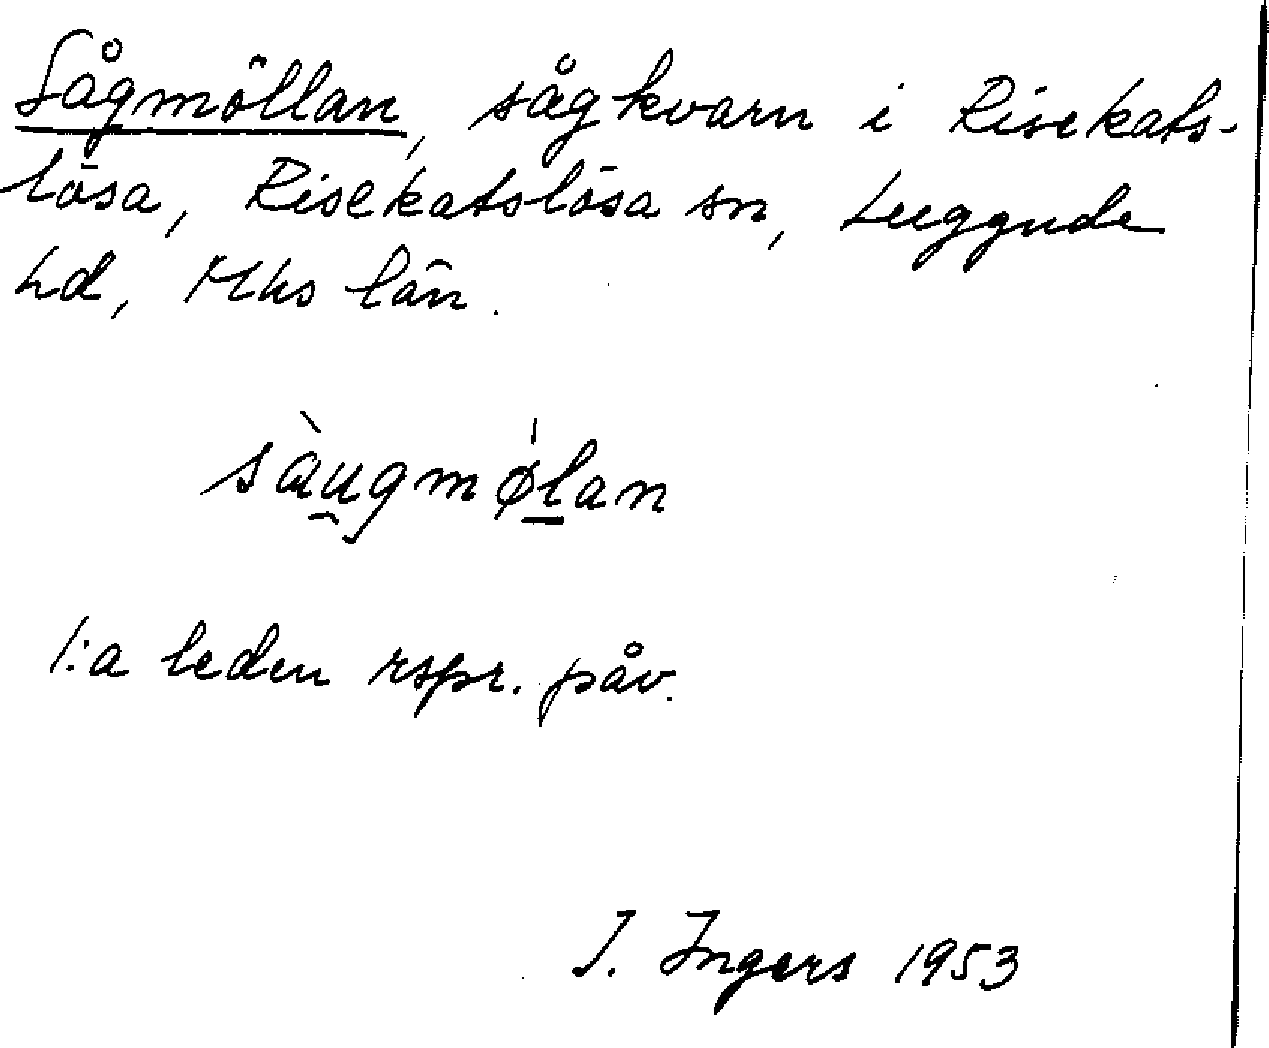 Sågmöllan, sågkvarn i Risekats-
lösa, Risekatslösa sn, Luggude
hd, Mhs län.
sàu̯gmø̍lan
1:a leden rspr. påv.
I. Ingers 1953